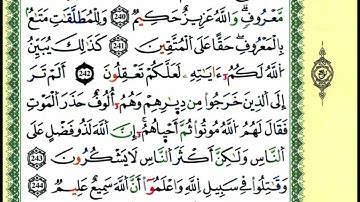 مَّعْرُوفٍ ۗ وَٱللَّهُ عَزِيزٌ حَكِيمٌ ٢٤٠ وَلِلْمُطَلَّقَٰتِ مَتَٰعٌۢ
بِٱلْمَعْرُوفِ ۖ حَقًّا عَلَى ٱلْمُتَّقِينَ ٢٤١ كَذَٰلِكَ يُبَيِّنُ
ٱللَّهُ لَكُمْ ءَايَٰتِهِۦ لَعَلَّكُمْ تَعْقِلُونَ ٢٤٢ أَلَمْ تَرَ
إِلَى ٱلَّذِينَ خَرَجُوا۟ مِن دِيَٰرِهِمْ وَهُمْ أُلُوفٌ حَذَرَ ٱلْمَوْتِ
فَقَالَ لَهُمُ ٱللَّهُ مُوتُوا۟ ثُمَّ أَحْيَٰهُمْ ۚ إِنَّ ٱللَّهَ لَذُو فَضْلٍ عَلَى
ٱلنَّاسِ وَلَٰكِنَّ أَكْثَرَ ٱلنَّاسِ لَا يَشْكُرُونَ ٢٤٣
وَقَٰتِلُوا۟ فِى سَبِيلِ ٱللَّهِ وَٱعْلَمُوٓا۟ أَنَّ ٱللَّهَ سَمِيعٌ عَلِيمٌ ٢٤٤